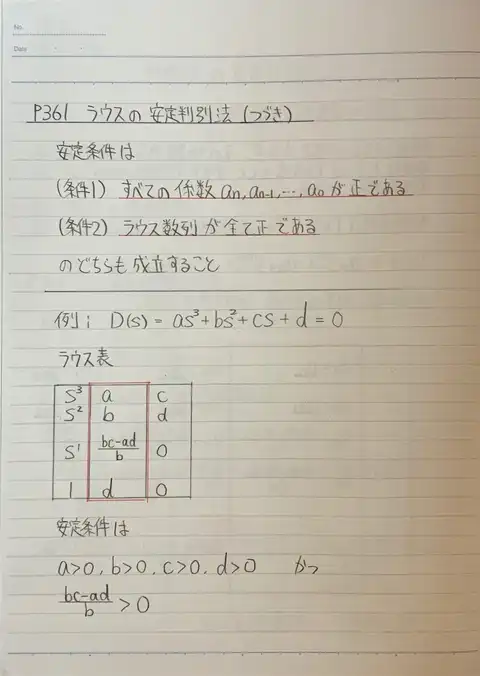 No.
Date
P361 ラウスの安定判別法(つづき)
安定条件は
(条件1) すべての係数 aₙ, aₙ₋₁, …, a₀ が正である
(条件2) ラウス数列が全て正である
のどちらも成立すること
例; D(s) = as³+bs²+cs+d=0
ラウス表
s³ a c
s² b d
s¹ (bc-ad)/b 0
1 d 0
安定条件は
a>0, b>0, c>0, d>0 かつ
(bc-ad)/b > 0